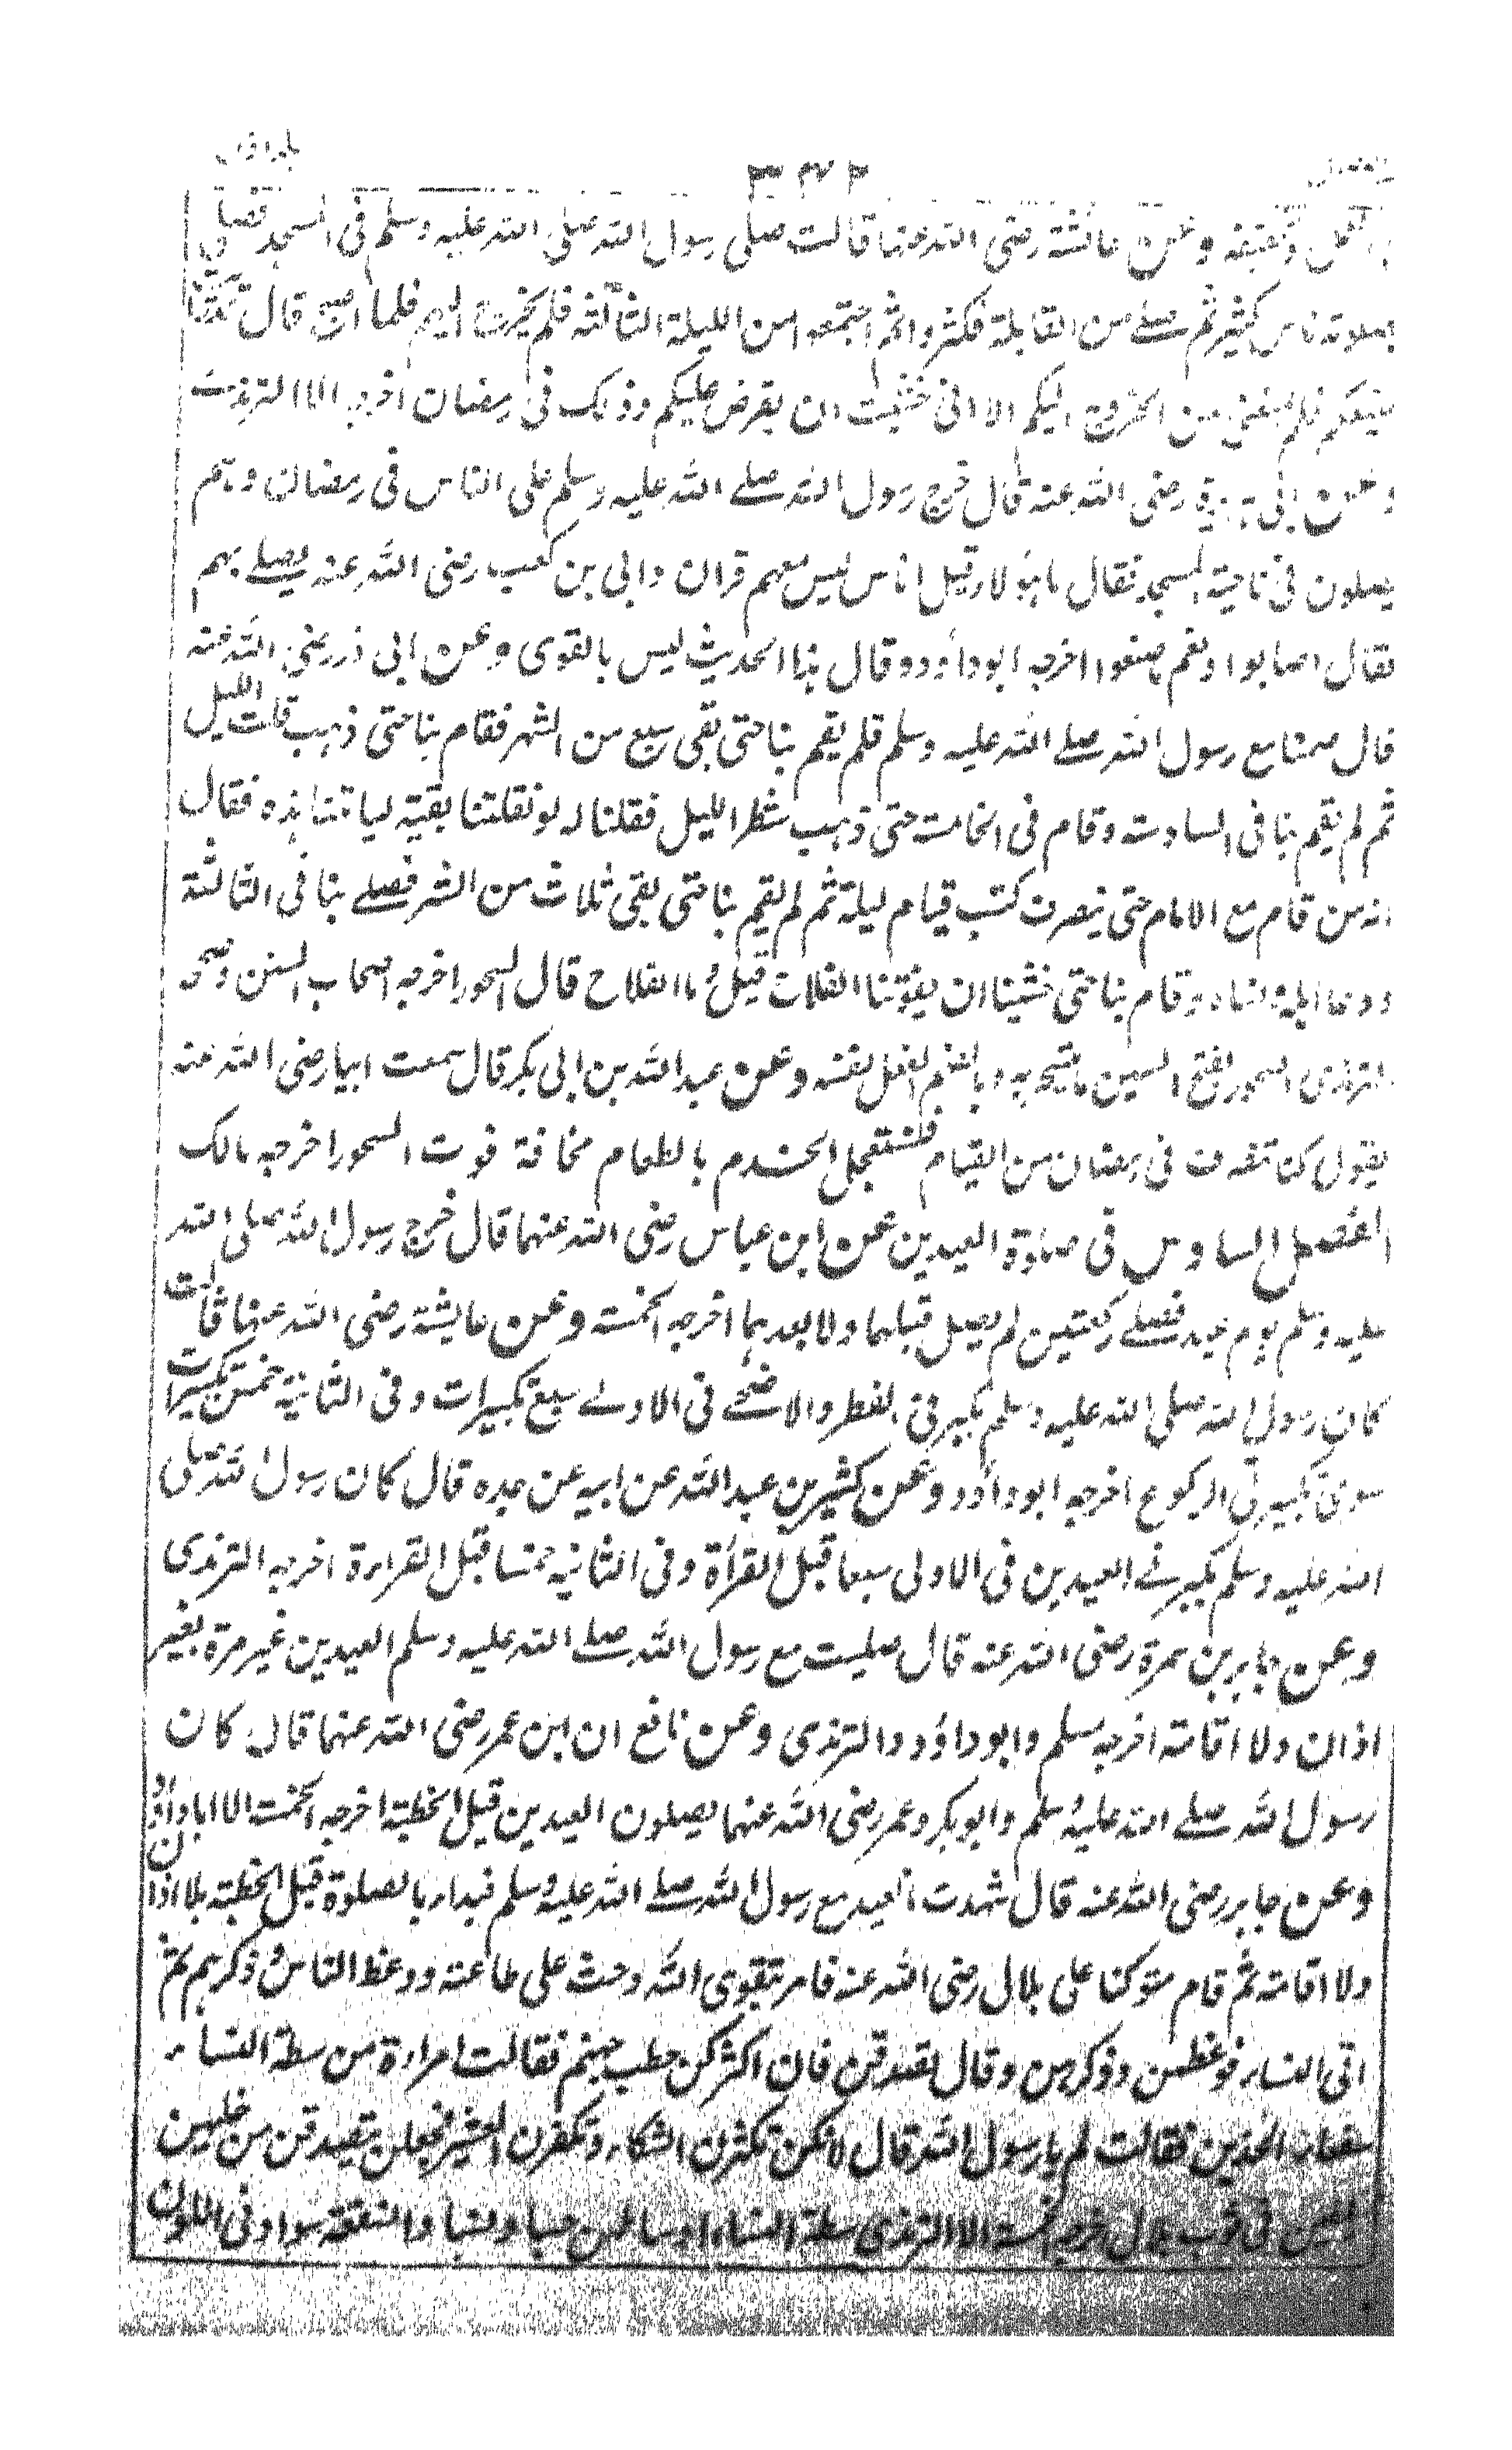 ۳۴۲
وعن عائشة رضی الله عنها قالت صلی رسول الله صلی الله علیه وسلم فی المسجد فصلی
بصلوته ناس کثیر ثم صلے من القابلة فکثروا ثم اجتمعوا من اللیلة الثالثة فلم یخرج الیهم فلما اصبح قال
صنیعکم فلم یمنعنی من الخروج الیکم الا انی خشیت ان یفرض علیکم وذلک فی رمضان اخرجه الا الترمذی
وعن ابی هریرة رضی الله عنه قال خرج رسول الله صلے الله علیه وسلم علی الناس فی رمضان وهم
یصلون فی ناحیة المسجد فقال ما هؤلاء قیل اناس لیس معهم قران وابی بن کعب رضی الله عنه یصلے بهم
فقال اصابوا ونعم ما صنعوا اخرجه ابوداؤد وقال هذا الحدیث لیس بالقوی وعن ابی ذر رضی الله عنه
قال صمنا مع رسول الله صلے الله علیه وسلم فلم یقم بنا حتی بقی سبع من الشهر فقام بنا حتی ذهب ثلث اللیل
ثم لم یقم بنا فی السادسة وقام فی الخامسة حتی ذهب شطر اللیل فقلنا له لو نفلتنا بقیة لیلتنا هذه فقال
انه من قام مع الامام حتی ینصرف کتب قیام لیلة ثم لم یقم بنا حتی بقی ثلاث من الشهر فصلے بنا فی الثالثة
ودعا اهله ونساءه وقام بنا حتی خشینا ان یفوتنا الفلاح قیل وما الفلاح قال السحور اخرجه اصحاب السنن وصححه
الترمذی السحور بفتح السین ما یتسحر به وبالضم الفعل نفسه وعن عبدالله بن ابی بکر قال سمعت ابیا رضی الله عنه
یقول کنا ننصرف فی رمضان من القیام فنستعجل الخدم بالطعام مخافة فوت السحور اخرجه مالک
الفصل السادس فی صلوة العیدین عن ابن عباس رضی الله عنهما قال خرج رسول الله صلی الله
علیه وسلم یوم عید فصلے رکعتین لم یصل قبلهما ولا بعدهما اخرجه الخمسة وعن عایشة رضی الله عنها قالت
کان رسول الله صلی الله علیه وسلم یکبر فی الفطر والاضحے فی الاولے سبع تکبیرات وفی الثانیة خمس تکبیرات
سوی تکبیرتی الرکوع اخرجه ابوداؤد وعن کثیر بن عبدالله عن ابیه عن جده قال کان رسول الله صلی
الله علیه وسلم یکبر فے العیدین فی الاولی سبعا قبل القرأة وفی الثانیه خمسا قبل القراءة اخرجه الترمذی
وعن جابر بن سمرة رضی الله عنه قال صلیت مع رسول الله صلے الله علیه وسلم العیدین غیر مرة بغیر
اذان ولا اقامة اخرجه مسلم وابوداؤد والترمذی وعن نافع ان ابن عمر رضی الله عنهما قال کان
رسول الله صلے الله علیه وسلم وابوبکر وعمر رضی الله عنهما یصلون العیدین قبل الخطبة اخرجه الخمسة الا اباداؤد
وعن جابر رضی الله عنه قال شهدت العید مع رسول الله صلے الله علیه وسلم فبدأ بالصلوة قبل الخطبة بلا اذان
ولا اقامة ثم قام متوکئا علی بلال رضی الله عنه فامر بتقوی الله وحث علی طاعته ووعظ الناس وذکرهم ثم
اتی النساء فوعظهن وذکرهن وقال تصدقن فان اکثرکن حطب جهنم فقالت امراءة من سطة النساء
سفعاء الخدین فقالت لم یا رسول الله قال لانکن تکثرن الشکاة وتکفرن العشیر فجعلن یتصدقن من حلیهن
یلقین فی ثوب بلال اخرجه الخمسة الا الترمذی سطة النساء اوساطهن حسبا ونسبا والسفعة سواد فی اللون